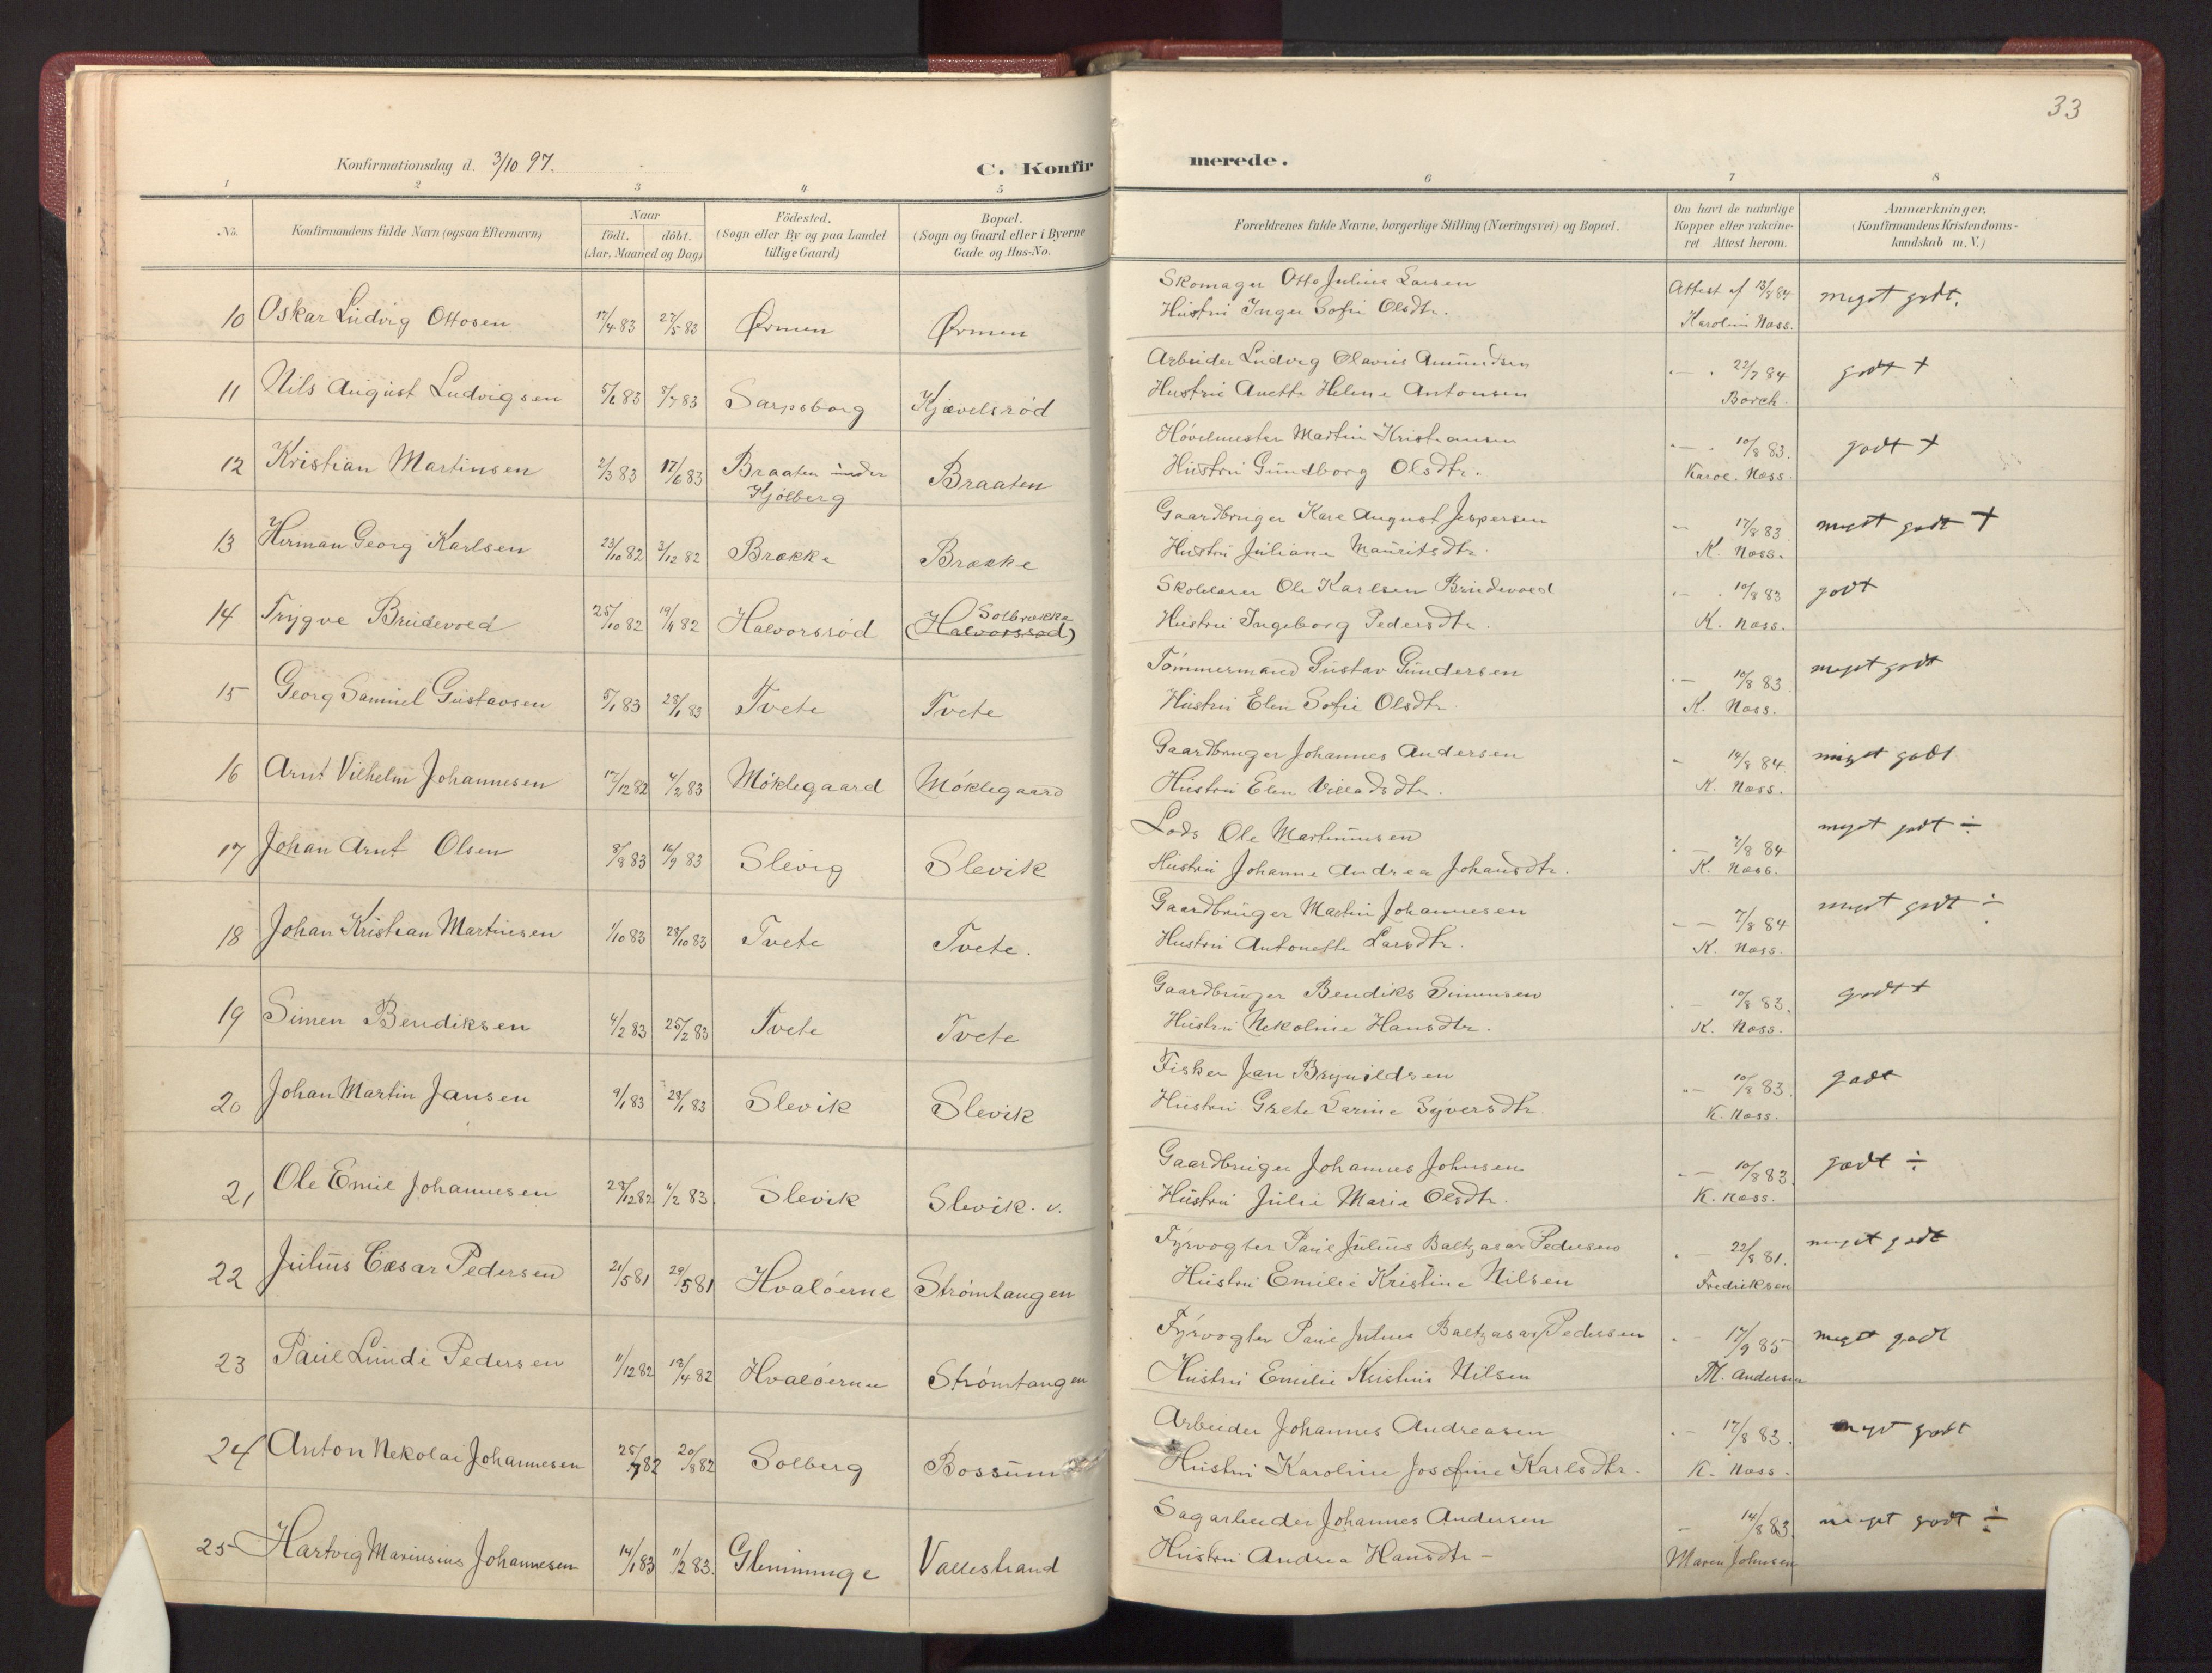 33
Konfirmationsdag d. 3/10 97.
C. Konfirmerede.
1 2 3 4 5 6 7 8
No.
Konfirmandens fulde Navn (ogsaa Efternavn)
Naar
födt. döbt.
(Aar, Maaned og Dag)
Födested.
(Sogn eller By og paa Landet
tillige Gaard)
Bopæl.
(Sogn og Gaard eller i Byerne
Gade og Hus-No.
Forældrenes fulde Navne, borgerlige Stilling (Næringsvei) og Bopæl.
Om havt de naturlige
Kopper eller vakcine-
ret Attest herom.
Anmærkninger,
(Konfirmandens Kristendoms-
kundskab m. V.)
10 Oskar Ludvig Ottosen 17/4 83 27/5 83 Ørmen Ørmen
Skomager Otto Julius Larsen Attest af 13/8 84 meget godt.
Hustru Inger Sofie Olsdtr. Karoline Næss.
11 Nils August Ludvigsen 5/6 83 8/7 83 Sarpsborg Kjævelsrød
Arbeider Ludvig Olavus Amundsen " — " 22/7 84 godt +
Hustru Anette Helene Antonsen Borch.
12 Kristian Martinsen 2/3 83 17/6 83 Braaten under Kjølberg Braaten
Høvelmester Martin Kristiansen " — " 10/8 83. godt +
Hustru Gundborg Olsdtr. Karol. Næss.
13 Herman Georg Karlsen 23/10 82 3/12 82 Brække Brække
Gaardbruger Karl August Jespersen " — 17/8 83. meget godt +
Hustru Juliane Mauritsdtr. K. Næss.
14 Trygve Brudevold 25/10 82 19/11 82 Halvorsrød Solbrække (Halvorsrød)
Skolelærer Ole Karlsen Brudevold " — " 10/8 83 godt
Hustru Ingeborg Pedersdtr. K. Næss.
15 Georg Samuel Gustavsen 5/1 83 28/1 83 Tvete Tvete
Tømmermand Gustav Gundersen " — 10/8 83. meget godt
Hustru Elen Sofie Olsdtr. K. Næss.
16 Arnt Vilhelm Johannesen 17/12 82 4/2 83 Møklegaard Møklegaard
Gaardbruger Johannes Andersen " 14/8 84. meget godt
Hustru Elen Villadsdtr. K. Næss.
17 Johan Arnt Olsen 8/8 83 16/9 83 Slevig Slevik
Lods Ole Martinusen " — 7/8 84 meget godt ÷
Hustru Johanne Andrea Johansdtr. K. Næss.
18 Johan Kristian Martinsen 1/10 83 28/10 83 Tvete Tvete.
Gaardbruger Martin Johannesen — — 7/8 84 meget godt ÷
Hustru Antonette Larsdtr. K. Næss.
19 Simen Bendiksen 4/2 83 25/2 83 Tvete Tvete
Gaardbruger Bendiks Simensen " — 10/8 83. godt +
Hustru Nekoline Hansdtr. K. Næss.
20 Johan Martin Jansen 9/1 83 28/1 83 Slevik Slevik
Fisker Jan Brynildsen " — 10/8 83. godt
Hustru Grete Sarine Syversdtr. K. Næss.
21 Ole Emil Johannesen 28/12 82 11/2 83. Slevik Slevik. v.
Gaardbruger Johannes Johnsen " — 10/8 83. godt ÷
Hustru Julie Marie Olsdtr. K. Næss.
22 Julius Cæsar Pedersen 21/5 81 29/5 81 Hvaløerne Strømtangen
Fyrvogter Paul Julius Baltzasar Pedersen " — 22/8 81. meget godt
Hustru Emilie Kristine Nilsen Fredriksen
23 Paul Lunde Pedersen 11/12 82 13/4 82 Hvaløerne Strømtangen
Fyrvogter Paul Julius Baltzasar Pedersen " — 17/9 85 meget godt
Hustru Emilie Kristine Nilsen M. Andersen
24 Anton Nekolai Johannesen 25/7 82 20/8 82 Solberg Bossum
Arbeider Johannes Andreasen " — 17/8 83. meget godt
Hustru Karoline Josefine Karlsdtr. K. Næss.
25 Hartvig Marinsius Johannesen 14/1 83 11/2 83. Glemminge Vallestrand
Sagarbeider Johannes Andersen — 14/8 83. meget godt ÷
Hustru Andrea Hansdtr — Maren Johnsen